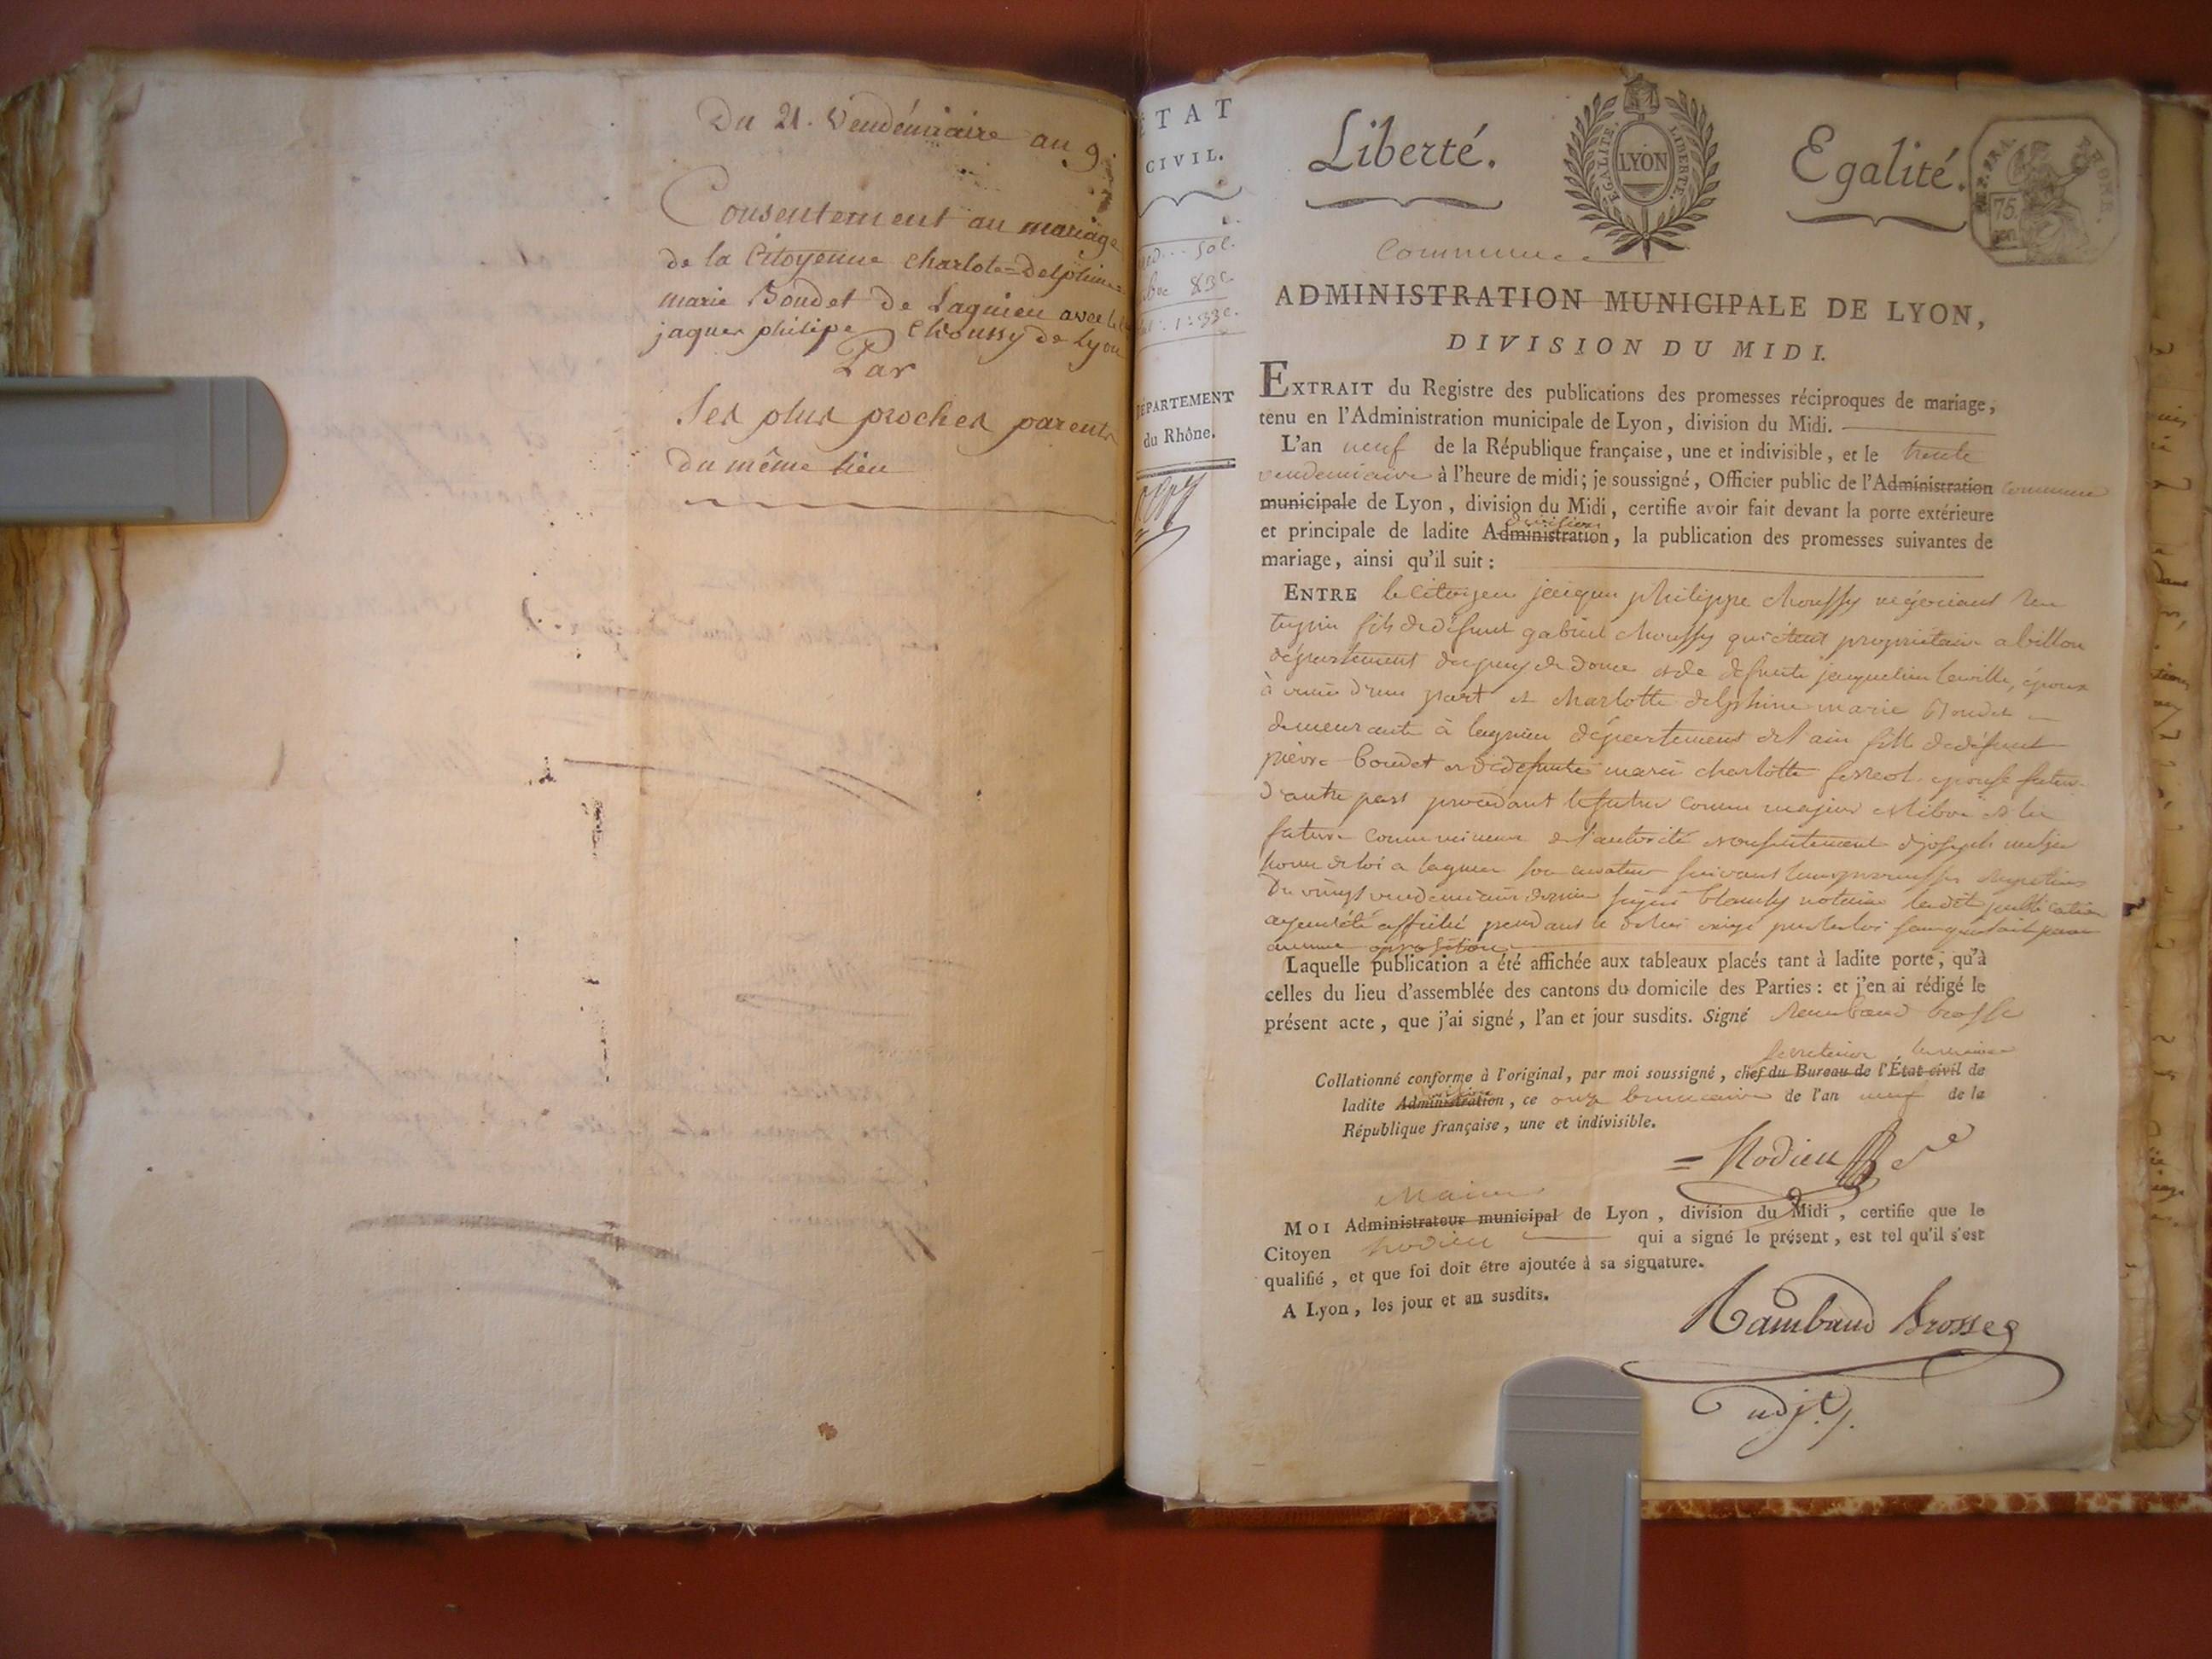 Du 21. Vendémiaire an 9.
Consentement au mariage
de la Citoyenne Charlote=Delphine
marie Boudet de Lagnieu avec le
jaques philipe Choussy de Lyon
Par
Ses plus proches parents
du même lieu
ETAT
CIVIL.
50c.
83c
1.33c.
DÉPARTEMENT
du Rhône.
Liberté.
EGALITÉ. LIBERTÉ.
LYON
Egalité.
REP. FRA.
75.
RHONE.
Commune
ADMINISTRATION MUNICIPALE DE LYON,
DIVISION DU MIDI.
EXTRAIT du Registre des publications des promesses réciproques de mariage,
tenu en l'Administration municipale de Lyon, division du Midi.
L'an neuf de la République française, une et indivisible, et le trente
vendemiaire à l'heure de midi; je soussigné, Officier public de l'Administration commune
municipale de Lyon, division du Midi, certifie avoir fait devant la porte extérieure
division
et principale de ladite Administration, la publication des promesses suivantes de
mariage, ainsi qu'il suit :
ENTRE le citoyen jacques philippe choussy négociant rue
tupin fils de défunt gabriel choussy quiétait propriétaire a billon
département du puy de dome et de défunte jacqueline époux
à venir d'une part et charlotte delphine marie Boudet
demeurante à lagnieu département de l'ain fille de défunt
pierre boudet et de defunte marie charlotte ferreol epouse future
d'autre part procédant le futur comme majeur et libre et la
future comme mineure de l'autorité et consentement de joseph
homme de loi a lagnieu son curateur suivant leurs promesses
du vingt vendemiaire dernier notaire ladite publication
ayant été affichée pendant le délai exigé par la loi
aucune opposition
Laquelle publication a été affichée aux tableaux placés tant à ladite porte, qu'à
celles du lieu d'assemblée des cantons du domicile des Parties : et j'en ai rédigé le
présent acte, que j'ai signé, l'an et jour susdits. Signé Rambaud brosse
secretaire
Collationné conforme à l'original, par moi soussigné, chef du Bureau de l'État civil de
division
ladite Administration, ce onze brumaire de l'an neuf de la
République française, une et indivisible.
= Hodieu
Maire
MOI Administrateur municipal de Lyon, division du Midi, certifie que le
Citoyen hodieu qui a signé le présent, est tel qu'il s'est
qualifié, et que foi doit être ajoutée à sa signature.
A Lyon, les jour et an susdits.
Rambaud Brosse
adjt.